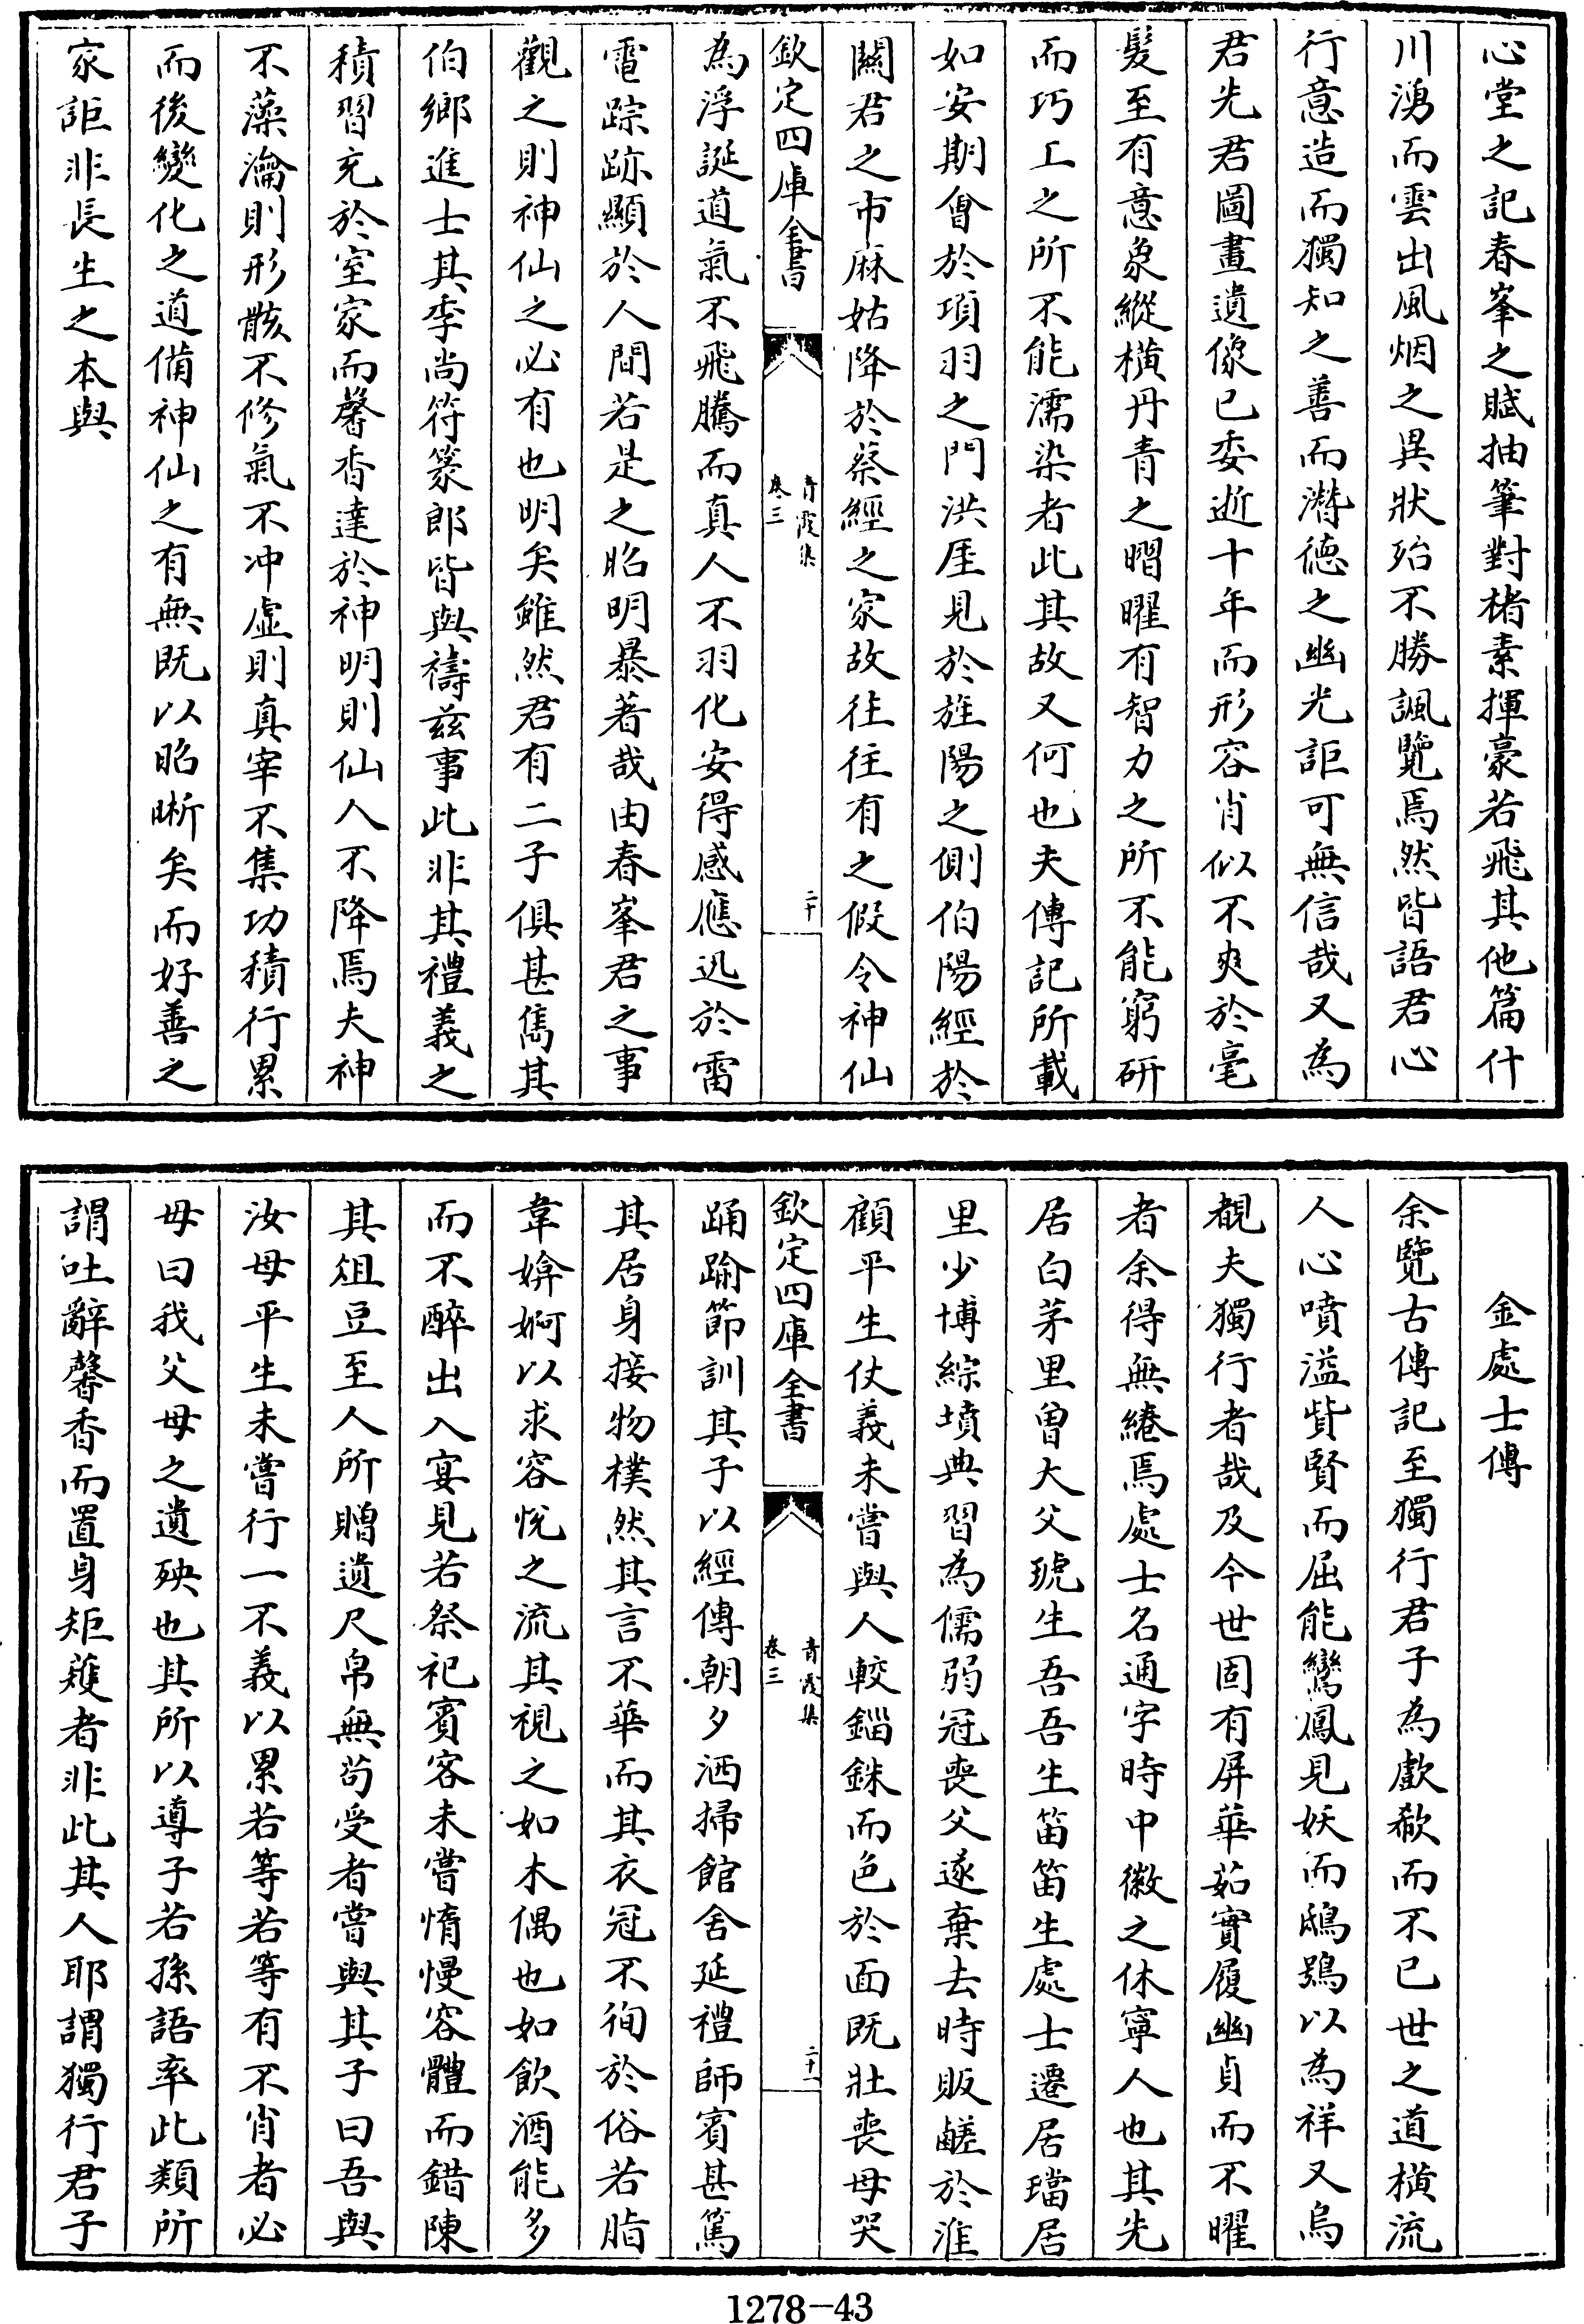 心堂之記春峯之賦抽筆對楮素揮豪若飛其他篇什
川湧而雲出風烟之異狀殆不勝諷覽焉然皆語君心
行意造而獨知之善而潛德之幽光詎可無信哉又為
君先君圖畫遺像已委逝十年而形容肖似不爽於毫
髮至有意象縱橫丹青之熠曜有智力之所不能窮研
而巧工之所不能濡染者此其故又何也夫傳記所載
如安期會於項羽之門洪厓見於旌陽之側伯陽經於
關君之市麻姑降於蔡經之家故往往有之假令神仙
欽定四庫全書
青霞集
卷三
二十
為浮誕道氣不飛騰而真人不羽化安得感應迅於雷
電踪跡顯於人間若是之昭明暴著哉由春峯君之事
觀之則神仙之必有也明矣雖然君有二子俱甚雋其
伯鄉進士其季尚符篆郎皆與禱茲事此非其禮義之
積習充於室家而馨香達於神明則仙人不降焉夫神
不藻瀹則形骸不修氣不冲虛則真宰不集功積行累
而後變化之道備神仙之有無既以昭晰矣而好善之
家詎非長生之本與
金處士傳
余覽古傳記至獨行君子為歔欷而不已世之道橫流
人心噴溢貲賢而屈能鸞鳳見妖而鴟鴞以為祥又烏
覩夫獨行者哉及今世固有屏華茹實履幽貞而不曜
者余得無綣焉處士名通字時中徽之休寧人也其先
居白茅里曾大父琥生吾吾生笛笛生處士遷居璫居
里少博綜墳典習為儒弱冠喪父遂棄去時販鹺於淮
顧平生仗義未嘗與人較錙銖而色於面既壯喪母哭
欽定四庫全書
青霞集
卷三
二十一
踊踰節訓其子以經傳朝夕洒掃館舍延禮師賓甚篤
其居身接物樸然其言不華而其衣冠不徇於俗若脂
韋媕婀以求容悅之流其視之如木偶也如飲酒能多
而不醉出入宴見若祭祀賓客未嘗惰慢容體而錯陳
其俎豆至人所贈遺尺帛無苟受者嘗與其子曰吾與
汝母平生未嘗行一不義以累若等若等有不肖者必
毋曰我父母之遺殃也其所以導子若孫語率此類所
謂吐辭馨香而置身矩矱者非此其人耶謂獨行君子
1278-43